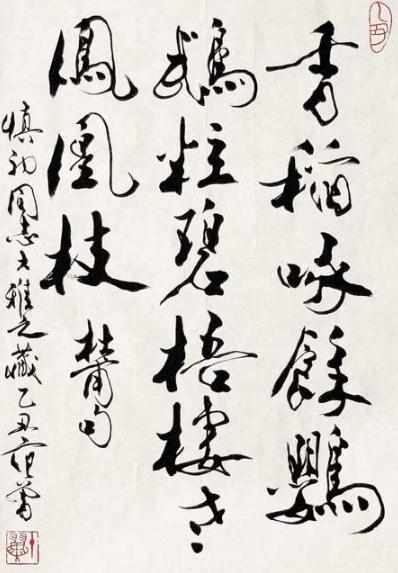 香稻啄餘鸚
鵡粒碧梧棲老
鳳凰枝 杜甫句
慎初同志大雅之藏乙丑范曾